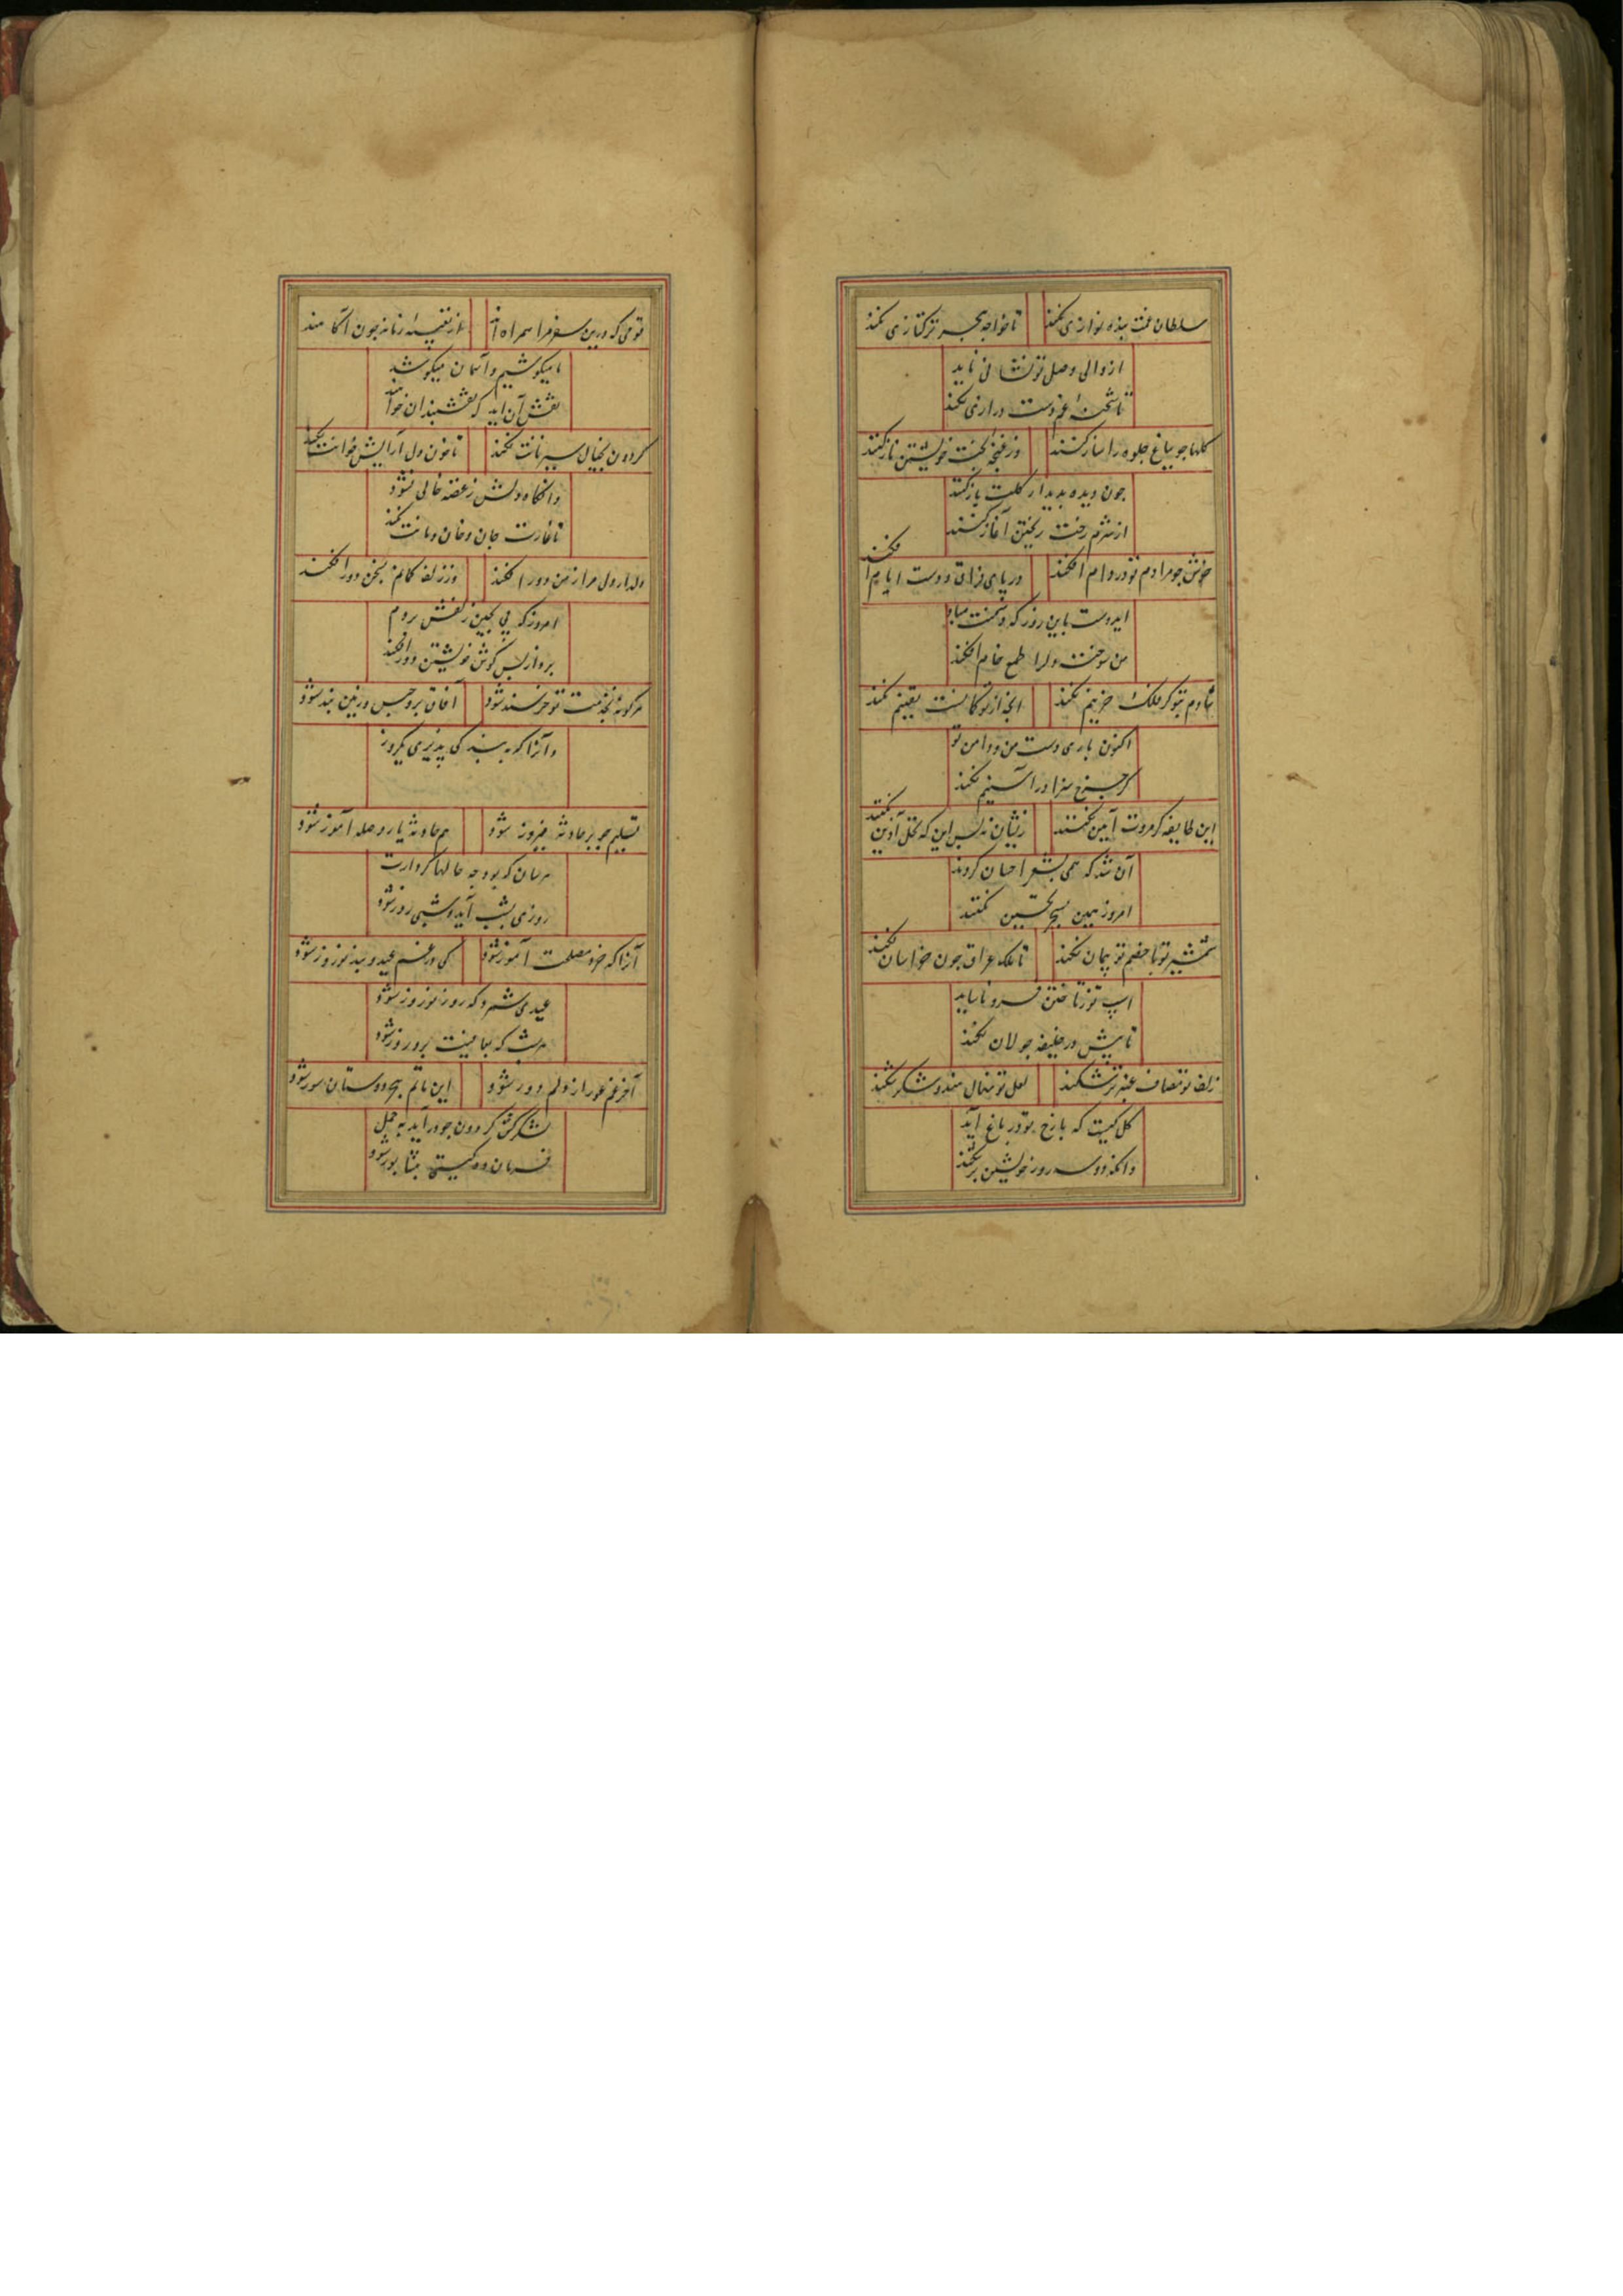 سلطان غمت بنده نوازی نکند تا خواجه هجر ترکتازی نکند
از والی وصل تو نشانی ناید
تا شحنهٔ غم دست درازی نکند
گلها چو بباغ جلوه را ساز کنند وز غنچه نخست خویشتن ناز کنند
چون دیده بدیدار گلت باز کنند
از شرم رخت ریختن آغاز کنند
خوش چو مرا دم تو در دام افکند در پای فراق دوست ایام افکند
ایدوست باین روز که دشمنت مباد
من سوخته دلرا طمع خام افکند
شادم بتو گر فلک حزینم نکند آنچ از تو گمانست یقینم نکند
اکنون باری دست من و دامن تو
گر چرخ سزا در آستینم نکند
این طایفه گر مروت آیین نکنند زیشان نه بس این که بخل آذین نکنند
آن شد که همی بشعر احسان کردند
امروز همین بسیج تحسین نکنند
شمشیر تو با خصم تو پیمان نکند تا ملک عراق چون خراسان نکند
اسپ تو ز تاختن فرو ناساید
تا پیش در خلیفه جولان نکند
زلف تو مصاف عنبر تر شکند لعل تو نهال قند و شکر شکند
گل کیست که با رخ تو در باغ آید
وانکه دو سه روز خویشتن بر شکند
قومی که درین سفر مرا همراه اند از تعبیهٔ زمانه چون آگاهند
ما میکوشیم و آسمان میکوشد
نقش آن آید که نقشبندان خواهند
گردون بخیال سیر نانت نکند تا خون دل آرایش خوانت نکند
وانگاه دلش ز غصه خالی نشود
تا غارت جان و خان و مانت نکند
دلدار دل مرا ز من دور افکند وز زلف کمانم بسخن دور افکند
امروز که پی بچین زلفش بردم
برد از پس گوش خویشتن دور افکند
هر کو نه بخدمت تو خرسند شود آفاق برو حبس و زمین بند شود
و آنرا که به بندگی پذیری یکروز
تسلیم چو بر حادثه پیروز شود هم حادثه یار و حیله آموز شود
هرسان که بود چه حالها گردانت
روزی بشب آید و شبی روز شود
آنرا که خرد مصلحت آموز شود کی در غم عید و بند نوروز شود
عیدی شمرد که روز نوروز شود
هر شب که بعافیت برو روز شود
آخر غم غور از دلم دور شود این ماتم هجر دوستان سور شود
لشکرکش گردون چو در آید بحمل
فرمان ده گیتی به نشابور شود